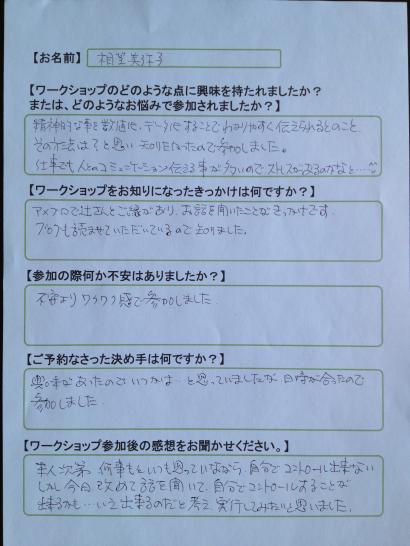 【お名前】 相葉美弥子
【ワークショップのどのような点に興味を持たれましたか？
または、どのようなお悩みで参加されましたか？】
精神的な事を数値化、データ化することでわかりやすく伝えられるとのこと、
その方法は？と思い知りたかったので参加しました。
仕事でも人とのコミュニケーション伝える事が多いのでストレスが減るのかなと…
【ワークショップをお知りになったきっかけは何ですか？】
アメブロで辻さんとご縁があり、お話を聞いたことがきっかけです。
ブログも読ませていただいているので知りました。
【参加の際何か不安はありましたか？】
不安よりワクワク感で参加しました。
【ご予約なさった決め手は何ですか？】
興味があったのでいつかは…と思っていましたが、日時が合ったので
参加しました。
【ワークショップ参加後の感想をお聞かせください。】
本人次第、何事もといつも思っていながら、自分でコントロール出来ない
しかし今日、改めて話を聞いて、自分でコントロールすることが
出来るかも…いえ出来るのだと考え、実行してみたいと思いました。